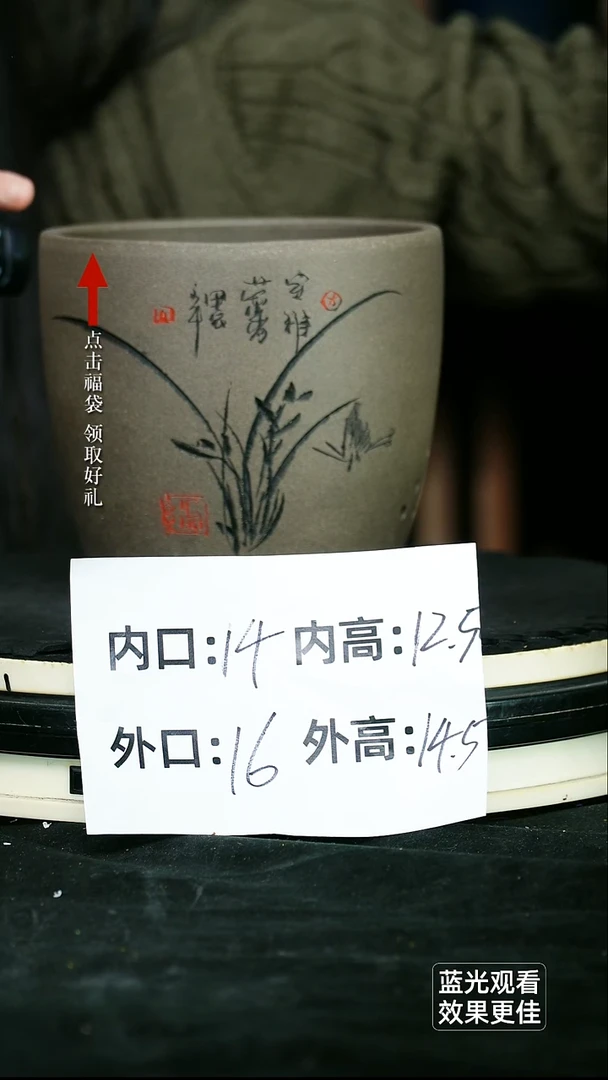 点击福袋 领取好礼
内口:14 内高:12.5
外口:16 外高:14.5
蓝光观看
效果更佳